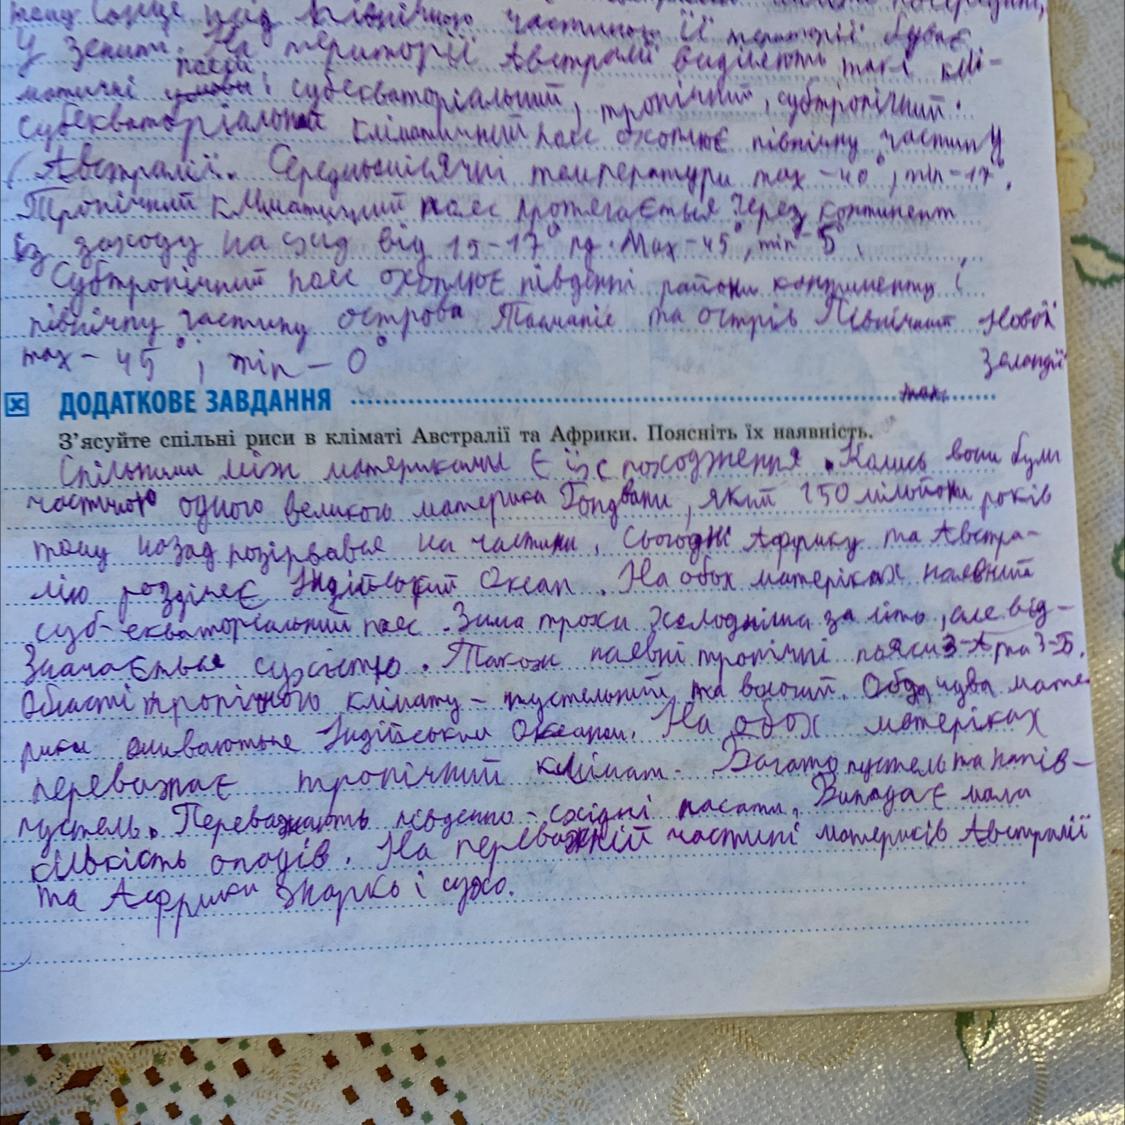 тому Сонце над Північною частиною її території буває
у зеніті. На території Австралії виділяють такі клі-
пояси
матичні умови: субекваторіальний, тропічний, субтропічний.
Субекваторіальний кліматичний пояс охоплює північну частину
Австралії. Середньомісячні температури max - 40°, min - 17°.
Тропічний кліматичний пояс протягається через континент
із заходу на схід від 19-17° пд. Max - 45°, min - 5°.
Субтропічний пояс охоплює південні райони континенту і
північну частину острова Тасманія та острів Північний Нової
Зеландії
max - 45°, min - 0°
ДОДАТКОВЕ ЗАВДАННЯ
З'ясуйте спільні риси в кліматі Австралії та Африки. Поясніть їх наявність.
Спільними між материками є їх походження. Колись вони були
частиною одного великого материка Гондвани, який 150 мільйони років
тому назад розірвався на частини. Сьогодні Африку та Австра-
лію розділяє Індійський Океан. На обох матеріках наявний
суб-екваторіальний пояс. Зима трохи холодніша за літо, але від-
значається сухістю. Також наявні тропічні пояси
Області тропічного клімату - пустельний та вологий. Обидва мате-
рики омиваються Індійським Океаном. На обох матеріках
переважає тропічний клімат. Багато пустель та напів-
пустель. Переважають південно-східні пасати. Випадає мала
кількість опадів. На переважній частині материків Австралії
та Африки жарко і сухо.